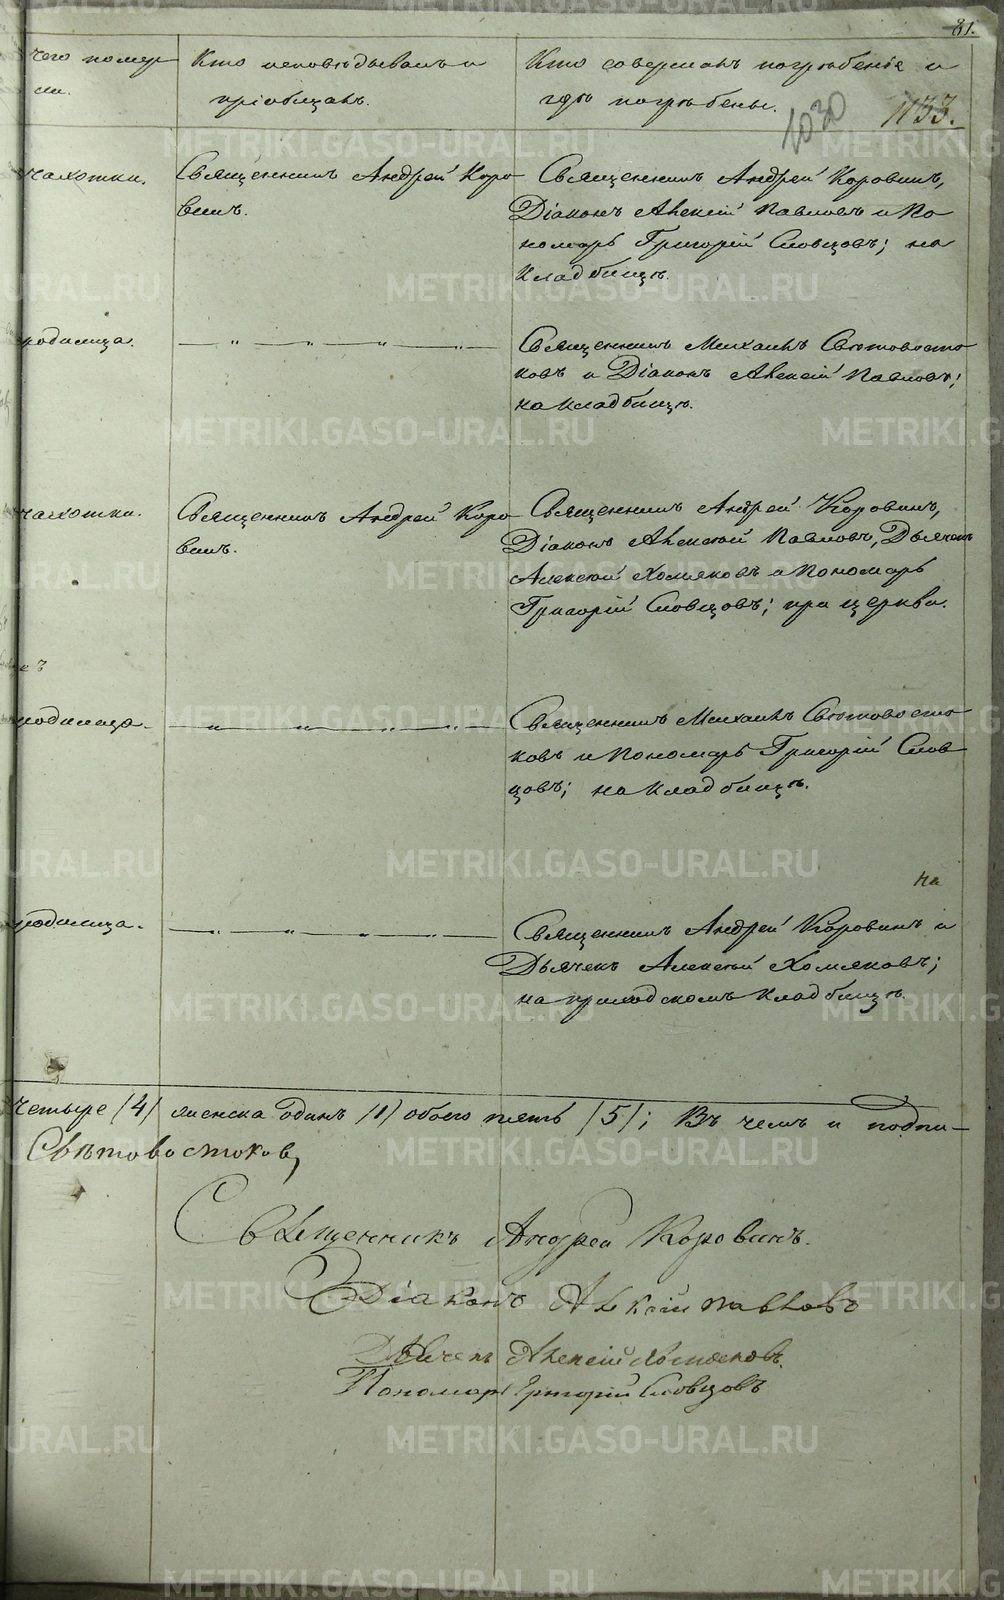 81.
чего помер
ли.
Кто исповѣдывалъ и
пріобщалъ.
Кто совершалъ погребеніе и
гдѣ погребены.
1030
1133.
чахотки.
Священникъ Андрей Коро
винъ.
Священникъ Андрей Коровинъ,
Діаконъ Алексій Павловъ и По
номарь Григорій Словцовъ; на
кладбищѣ.
родимца.
— " — " — " — " —
Священникъ Михаилъ Свѣтовосто
ковъ и Діаконъ Алексій Павловъ;
на кладбищѣ.
чахотки.
Священникъ Андрей Коро
винъ.
Священникъ Андрей Коровинъ,
Діаконъ Алексѣй Павловъ, Дьячекъ
Алексѣй Хомяковъ и Пономарь
Григорій Словцовъ; при церкви.
родимца.
— " — " — " — " —
Священникъ Михаилъ Свѣтовосто
ковъ и Пономарь Григорій Слов
цовъ; на кладбищѣ.
на
родимца.
— " — " — " — " —
Священникъ Андрей Коровинъ и
Дьячекъ Алексѣй Хомяковъ;
на приходскомъ кладбищѣ.
четыре /4/ женска одинъ /1/ обоего пять /5/; Въ чемъ и подпи-
Свѣтовостоковъ,
Священникъ Андрей Коровинъ.
Діаконъ Алексій Павловъ
Дьячекъ Алексій Хомяковъ.
Пономарь Григорій Словцовъ
METRIKI.GASO-URAL.RU